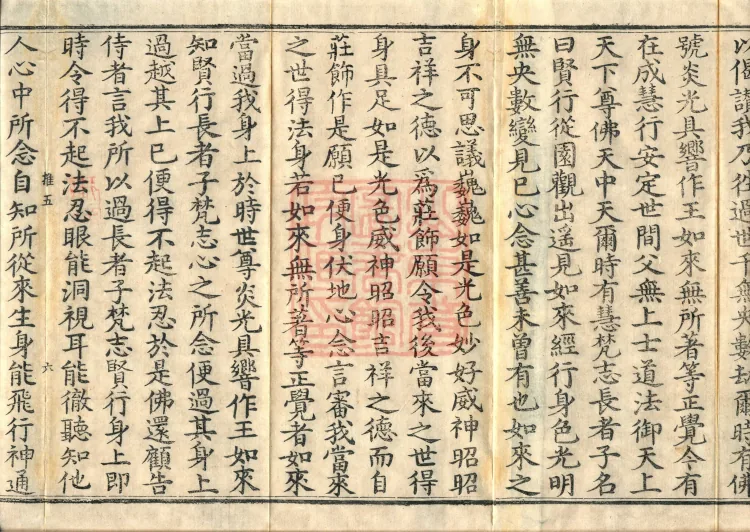 以偈讃我乃往過世千無央數劫爾時有佛
號炎光具響作王如來無所著等正覺今有
在成慧行安定世間父無上士道法御天上
天下尊佛天中天爾時有慧梵志長者子名
曰賢行從園觀出遥見如來經行身色光明
無央數變見已心念甚善未曾有也如來之
身不可思議巍巍如是光色妙好威神昭昭
吉祥之德以爲莊飾願令我後當來之世得
身具足如是光色威神昭昭吉祥之德而自
莊飾作是願已便身伏地心念言審我當來
之世得法身若如來無所著等正覺者如來
當過我身上於時世尊炎光具響作王如來
知賢行長者子梵志心之所念便過其身上
過越其上已便得不起法忍於是佛還顧告
侍者言我所以過長者子梵志賢行身上即
時令得不起法忍眼能洞視耳能徹聽知他
推五 六
人心中所念自知所從來生身能飛行神通